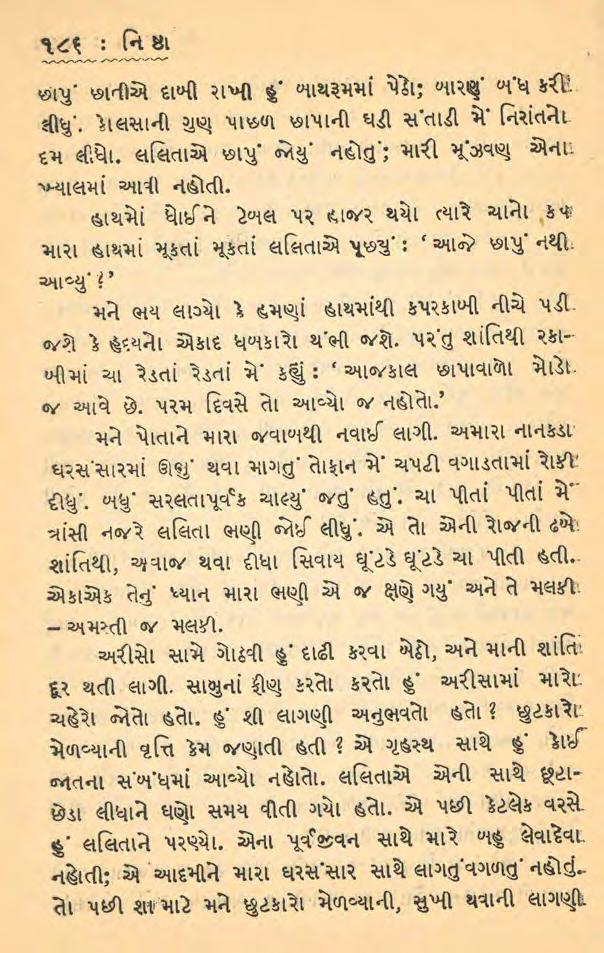 ૧૮૬ : નિ ષ્ઠા
છાપું છાતીએ દાબી રાખી હું બાથરૂમમાં પેઠો; બારણું બંધ કરી
લીધું. કોલસાની ગુણ પાછળ છાપાની ઘડી સંતાડી મેં નિરાંતનો
દમ લીધો. લલિતાએ છાપું જોયું નહોતું; મારી મૂંઝવણ એના
ખ્યાલમાં આવી નહોતી.
હાથમોં ધોઈને ટેબલ પર હાજર થયો ત્યારે ચાનો કપ
મારા હાથમાં મૂકતાં મૂકતાં લલિતાએ પૂછ્યું : ‘ આજે છાપું નથી
આવ્યું ?’
મને ભય લાગ્યો કે હમણાં હાથમાંથી કપરકાબી નીચે પડી
જશે કે હૃદયનો એકાદ ધબકારો થંભી જશે. પરંતુ શાંતિથી રકા-
બીમાં ચા રેડતાં રેડતાં મેં કહ્યું : ‘ આજકાલ છાપાવાળો મોડો
જ આવે છે. પરમ દિવસે તો આવ્યો જ નહોતો.’
મને પોતાને મારા જવાબથી નવાઈ લાગી. અમારા નાનકડા
ઘરસંસારમાં ઊભું થવા માગતું તોફાન મેં ચપટી વગાડતામાં રોકી
દીધું. બધું સરલતાપૂર્વક ચાલ્યું જતું હતું. ચા પીતાં પીતાં મેં
ત્રાંસી નજરે લલિતા ભણી જોઈ લીધું. એ તો એની રોજની ઢબે
શાંતિથી, અવાજ થવા દીધા સિવાય ઘૂંટડે ઘૂંટડે ચા પીતી હતી.
એકાએક તેનું ધ્યાન મારા ભણી એ જ ક્ષણે ગયું અને તે મલકી
– અમસ્તી જ મલકી.
અરીસો સામે ગોઠવી હું દાઢી કરવા બેઠો, અને માની શાંતિ
દૂર થતી લાગી. સાબુનાં ફીણ કરતો કરતો હું અરીસામાં મારો
ચહેરો જોતો હતો. હું શી લાગણી અનુભવતો હતો ? છુટકારો
મેળવ્યાની વૃત્તિ કેમ જણાતી હતી ? એ ગૃહસ્થ સાથે હું કોઈ
જાતના સંબંધમાં આવ્યો નહોતો. લલિતાએ એની સાથે છૂટા-
છેડા લીધાને ઘણો સમય વીતી ગયો હતો. એ પછી કેટલેક વરસે
હું લલિતાને પરણ્યો. એના પૂર્વજીવન સાથે મારે બહુ લેવાદેવા
નહોતી; એ આદમીને મારા ઘરસંસાર સાથે લાગતુંવગળતું નહોતું.
તો પછી શા માટે મને છુટકારો મેળવ્યાની, સુખી થવાની લાગણી